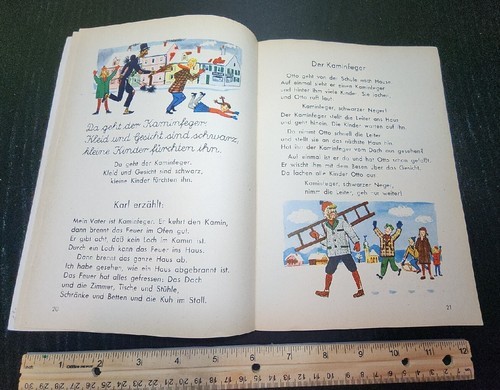 Da geht der Kaminfeger.
Kleid und Gesicht sind schwarz,
kleine Kinder fürchten ihn.
Da geht der Kaminfeger.
Kleid und Gesicht sind schwarz,
kleine Kinder fürchten ihn.
Karl erzählt:
Mein Vater ist Kaminfeger. Er kehrt den Kamin,
dann brennt das Feuer im Ofen gut.
Er gibt acht, daß kein Loch im Kamin ist.
Durch ein Loch kann das Feuer ins Haus.
Dann brennt das ganze Haus ab.
Ich habe gesehen, wie ein Haus abgebrannt ist.
Das Feuer hat alles gefressen: Das Dach
und die Zimmer, Tische und Stühle,
Schränke und Betten und die Kuh im Stall.
20
Der Kaminfeger
Otto geht von der Schule nach Hause.
Auf einmal sieht er einen Kaminfeger
und hinter ihm viele Kinder. Sie lachen,
und Otto ruft laut:
Kaminfeger, schwarzer Neger!
Der Kaminfeger stellt die Leiter ans Haus
und geht hinein. Die Kinder warten auf ihn.
Da nimmt Otto schnell die Leiter
und stellt sie an das nächste Haus hin.
Hat ihn der Kaminfeger vom Dach aus gesehen?
Auf einmal ist er da und hat Otto schon gefaßt.
Er wischt ihm mit dem Besen über das Gesicht.
Da lachen alle Kinder Otto aus:
Kaminfeger, schwarzer Neger,
nimm die Leiter, geh nur weiter!
21
1 2 3 4 5 6 7 8 9 10 11 12
30 29 28 27 26 25 24 23 22 21 20 19 18 17 16 15 14 13 12 11 10 9 8 7 6 5 4 3 2 1